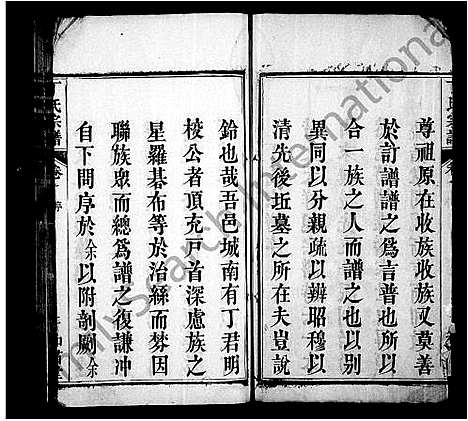 尊祖原在收族收族又莫善
於訂譜譜之為言普也所以
合一族之人而譜之也以別
異同以分親疏以辨昭穆以
清先後坵墓之所在夫豈説
鈴也哉吾邑城南有丁君明
校公者頂充戸首深慮族之
星羅碁布等於治絲而棼因
聯族衆而總為譜之復謙冲
自下問序於余以附剞劂余
氏宗譜
卷
序
MySearch International